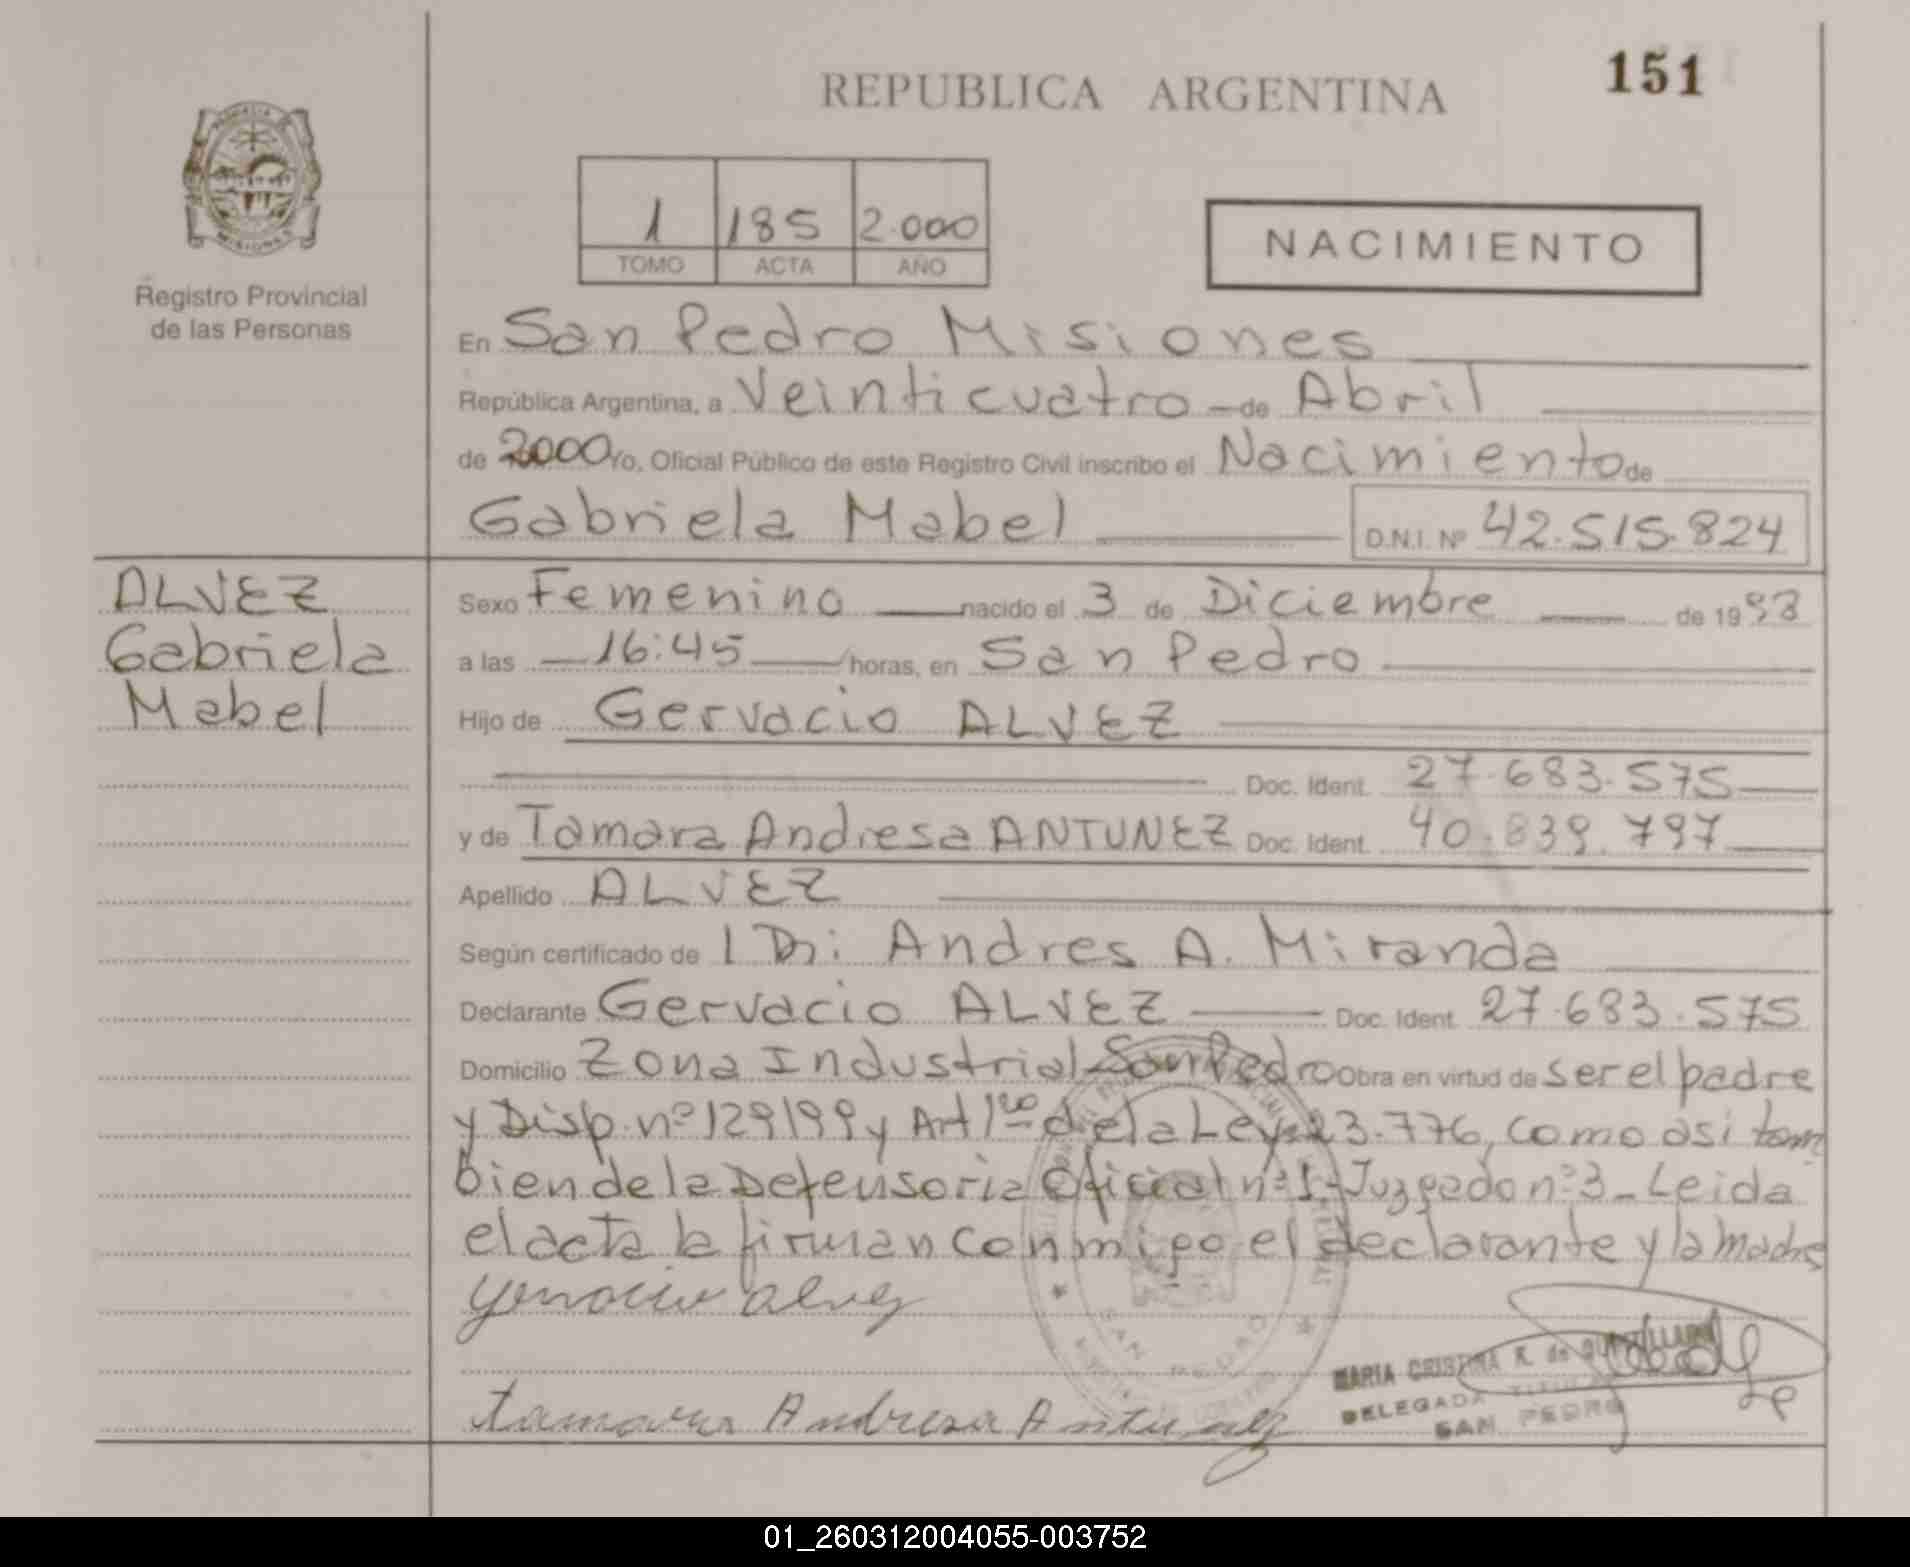 REPUBLICA ARGENTINA
151
MISIONES
Registro Provincial
de las Personas
1 185 2.000
TOMO ACTA AÑO
NACIMIENTO
En San Pedro Misiones
República Argentina, a Veinticuatro de Abril
de 2000 Yo, Oficial Público de este Registro Civil inscribo el Nacimiento de
Gabriela Mabel D.N.I. Nº 42.515.824
ALVEZ
Gabriela
Mabel
Sexo Femenino nacido el 3 de Diciembre de 19
a las 16:45 horas, en San Pedro
Hijo de Gervacio ALVEZ
Doc. Ident. 27.683.575
y de Tamara Andresa ANTUNEZ Doc. Ident. 40.839.797
Apellido ALVEZ
Según certificado de Andres A. Miranda
Declarante Gervacio ALVEZ Doc. Ident. 27.683.575
Domicilio Zona Industrial San Pedro Obra en virtud de ser el padre
y Disp. nº 129/99 y Art 1ro de la Ley 23.776, como asi tam
bien de la Defensoria Oficial nº 1 - Juzgado nº 3 - Leida
el acta la firman conmigo el declarante y la madre
Gervacio alvez
SAN PEDRO
MARIA CRISTINA R. de
DELEGADA TITULAR
SAN PEDRO
tamara Andresa Antunez
01_260312004055-003752